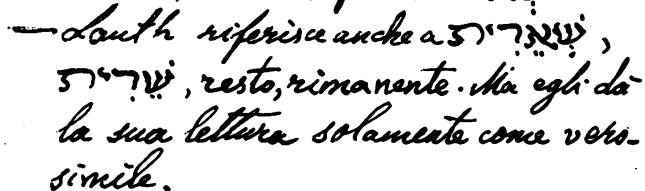 — Lauth riferisce anche a שְׁאֵרִית,
שֵׁרִית, resto, rimanente. Ma egli dà
la sua lettura solamente come vero-
simile.